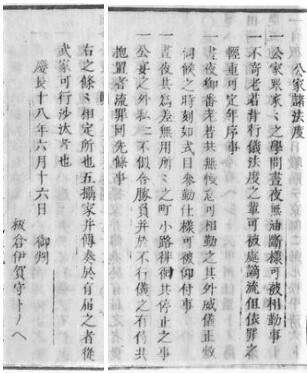 公家諸法度
一公家眾家々之學問晝夜無油斷樣可被相勤事
一不寄老若背行儀法度之輩可被處謫流但依罪之
輕重可定年序事
一晝夜御番老若共無懈怠可相勤之其外威儀正敷
伺候之時刻如式目參勤仕樣可被仰付事
一晝夜共為差無用所々之町小路徘徊共停止之事
一公宴之外私二不似合勝負并於不行儀之有侍共
抱置者流罪同先條事
右之條々相定所也五攝家并傳奏於有屆之者從
武家可行沙汰者也
慶長十八年六月十六日 御判
板倉伊賀守トノヘ